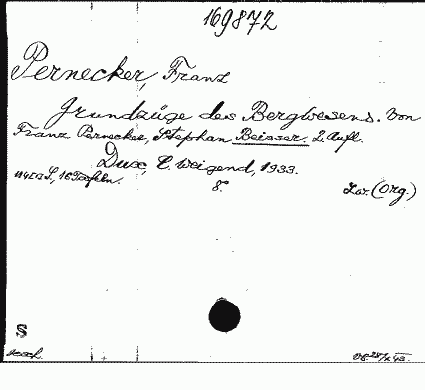 169872
Pernecker, Franz
Grundzüge des Bergwesens. Von
Franz Pernecker, Stephan Beisser. 2. Aufl.
Dux, C. Weigend, 1933.
S., 16 Tafeln. 8°
(Org.)
S